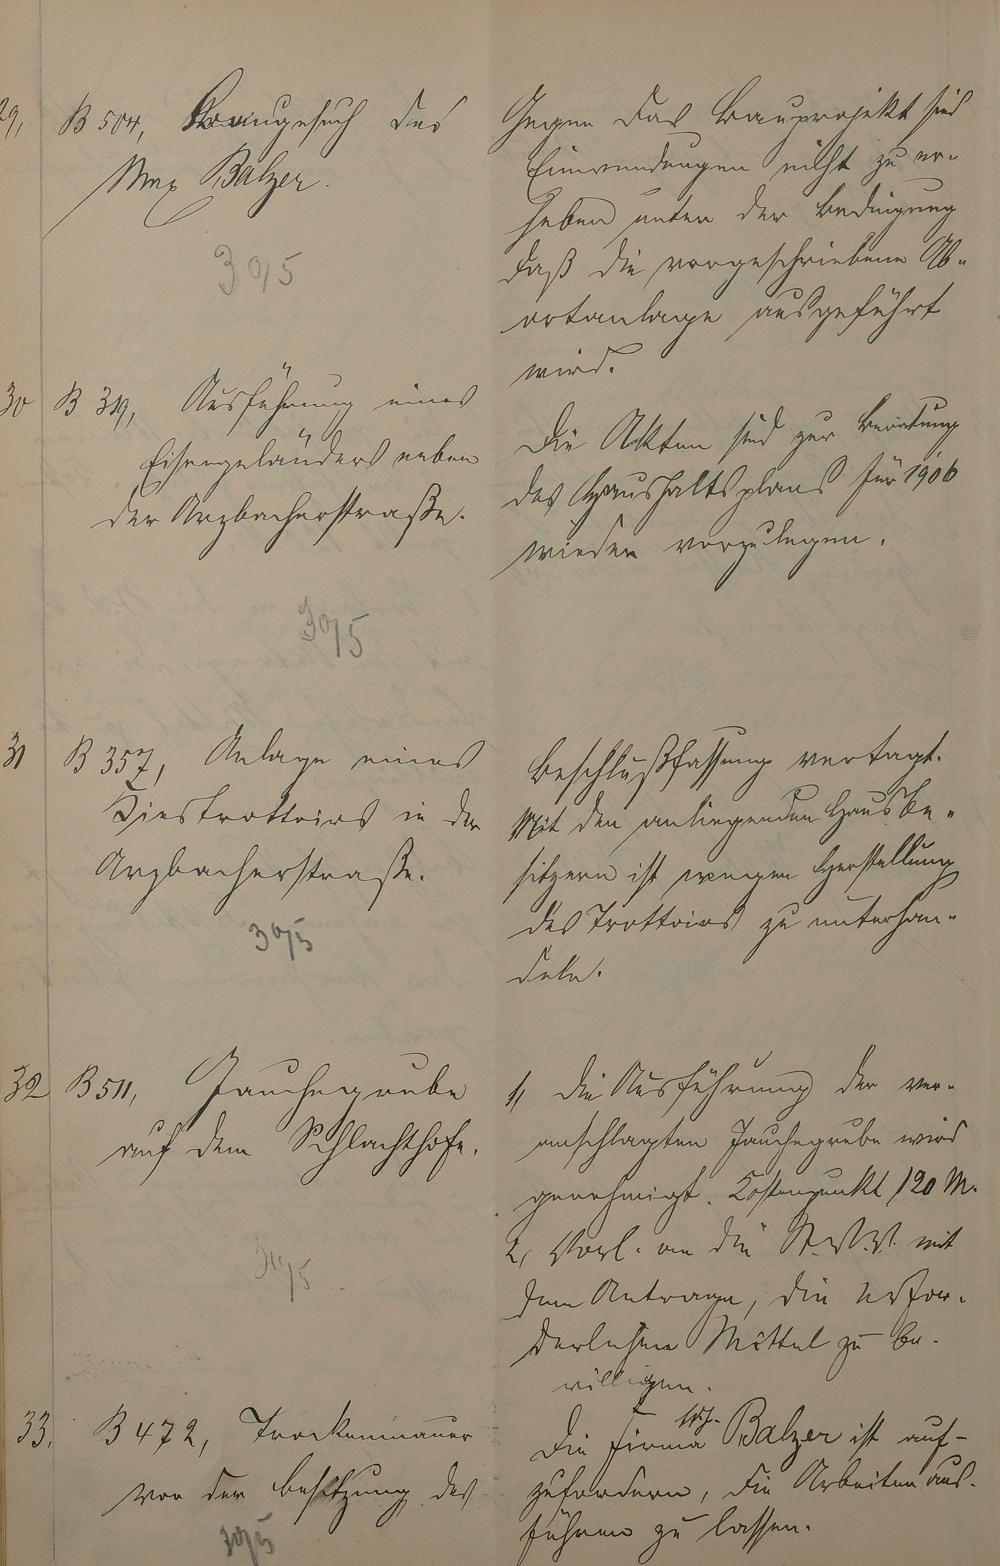 29, B 504, Baugesuch des
Max Balzer.
30/5
Gegen das Bauprojekt sind
Einwendungen nicht zu er-
heben unter der Bedingung
daß die vorgeschriebene Ab-
ortanlage ausgeführt
wird.
30 B 319, Ausführung eines
Eisengeländers neben
der Arzbacherstraße.
30/5
Die Akten sind zur Beratung
des Haushaltsplans für 1906
wieder vorzulegen.
31 B 357, Anlage eines
Kiestrottoirs in der
Arzbacherstraße.
30/5
Beschlußfassung vertagt.
Mit den anliegenden Hausbe-
sitzern ist wegen Herstellung
des Trottoirs zu unterhan-
deln.
32 B 511, Jauchegrube
auf dem Schlachthofe.
30/5
1, Die Ausführung der ver-
anschlagten Jauchegrube wird
genehmigt. Kostenpunkt 120 M.
2, Vorl. an die St.V.V. mit
dem Antrage, die erfor-
derlichen Mittel zu be-
willigen.
33. B 472, Trockenmauer
vor der Besitzung des
30/5
Die Firma Balzer ist auf-
zufordern, die Arbeiten aus-
führen zu lassen.